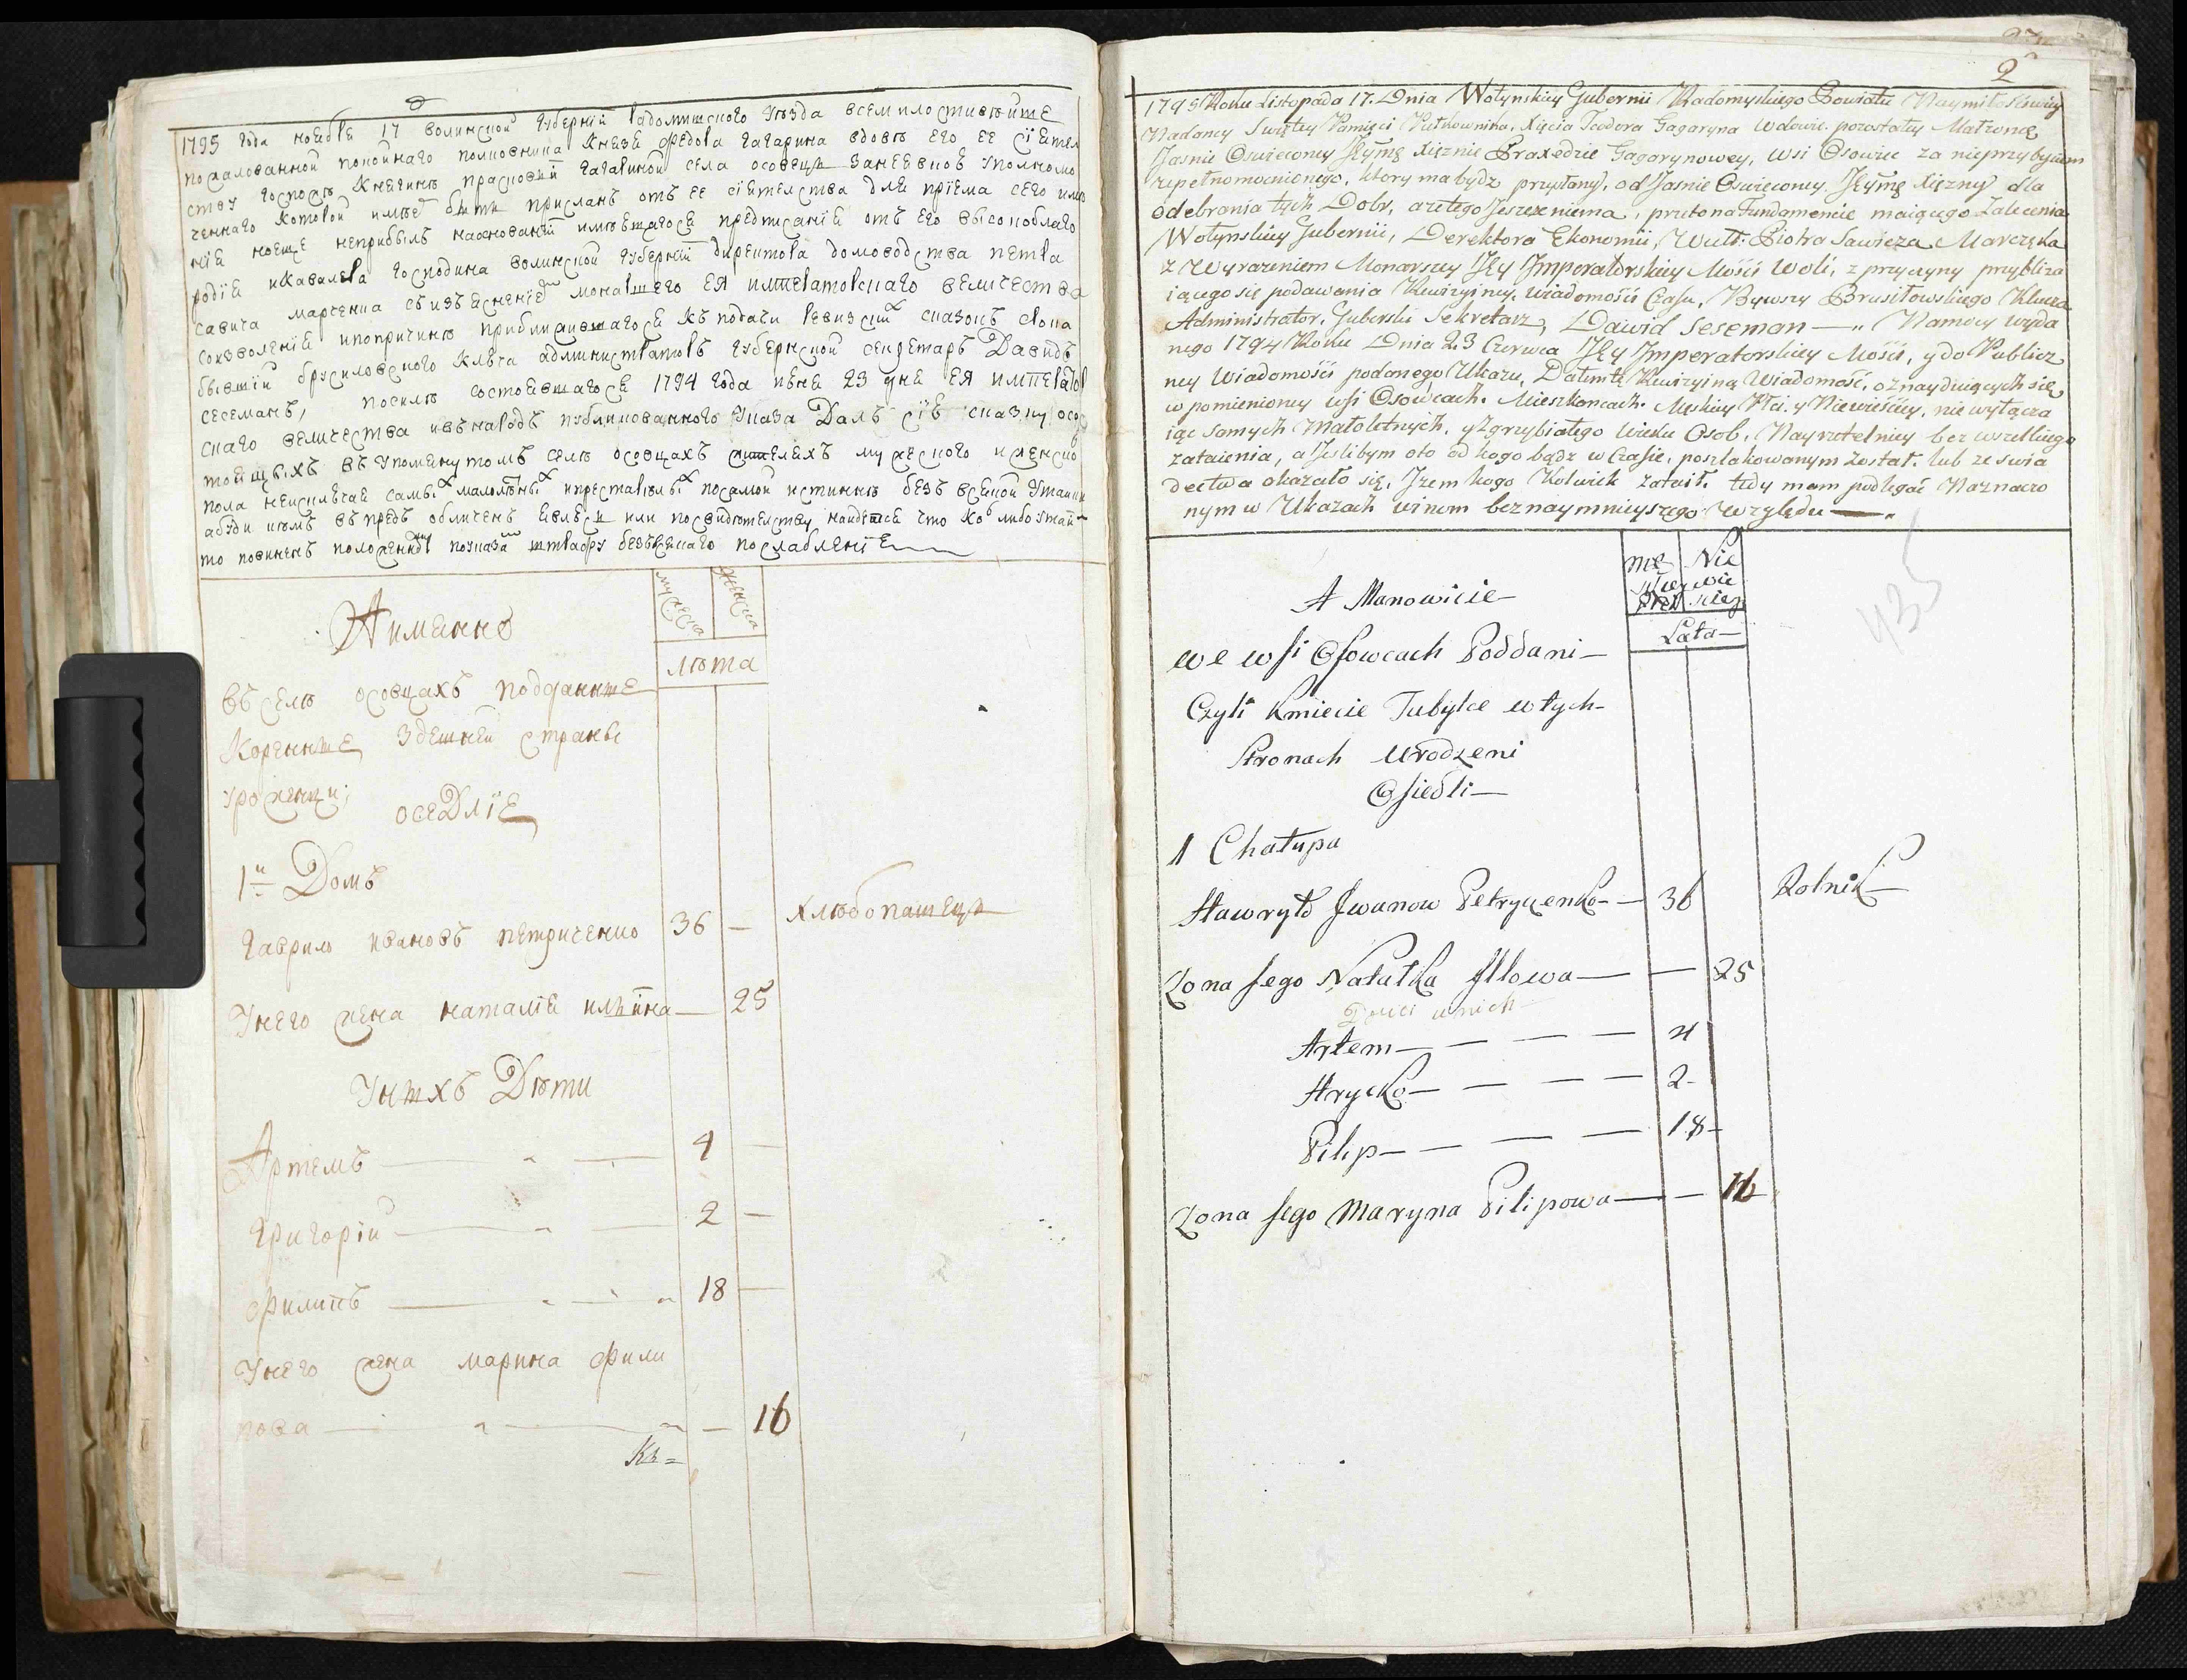 1795 года ноебре 17 волинской губерніи радомишского уезда всемилостивейше
пожалованной покойнаго полковника князя Федора Гагарина вдове его ее сіятел
ству госпоже княгине прасковіи гагариной села осовецъ занеевкою уполномо
ченнаго которой имее быти присланъ отъ ее сіятелства для пріема сего име
нія ноеще неприбылъ наоснованіи имеещагося предписанія отъ его високоблаго
родія икавалера господина волинской губерніи директора домоводства петра
савича марченка съ изъясненіем монаршего ея император­скаго величества
соизволенія ипопричине приближившагося къ подачи ревизскихъ сказокъ срока
бывшій брусиловского ключа администраторъ губернской секретарь Давидъ
сесеманъ, посилѣ состоевшагося 1794 года июня 23 дня ея император
скаго величества ивънародъ публикованного указа Далъ сію сказку о со
тоящыхъ въ упомянутомъ селѣ осовцахъ жителяхъ мужеского иженско
пола неисключая самыхъ малолѣтныхъ ипрестарѣлыхъ посамой истиннѣ безъ всякой утайки
абуди кѣмъ въпредь обличенъ явлюся или посвидѣтелству найдется что ково либо утаилъ
то повиненъ положенному поуказамъ штрафу безъвсякаго послабленія
А именно
мужеска
женска
лѣта
въ селѣ осовцахъ подданные
Коренные здешней страны
уроженци;
оседліе
1й Домъ
Гаврило ивановъ петриченко 36 — хлѣбопашецъ
У него жена наталія ильина — 25
У ныхъ Дѣти
Артемъ — 4 —
Григорій — 2 —
Филипъ — 18 —
У него жена марина фили
пова — — 16
Къ =
2
1795 Roku Listopada 17. Dnia Wołynskiey Gubernii Radomyskiego Powiatu Naymiłościwiey
Nadaney Swiętey Pamięci Pułkownika, Xięcia Teodora Gagaryna Wdowie pozostałey Matronie,
Jasnie Oswieconey Jeymę Xięznie Praxedzie Gagarynowey, Wsi Osowiec za nieprzybyciem
zupełnomocnionego, ktory ma bydz przysłany, od Jasnie Oswieconey Jeymę Xięzny dla
odebrania tych Dobr, a ze tego Jeszcze niema, przeto na Fundamencie maiącego Zalecenia
Wołynskiey Gubernii, Derektora Ekonomii, Piotra Sawicza Marczęka
z Wyrazeniem Monarszey Jey Imperatorskiey Mości Woli, z przyczyny przybliza
iącego się podawania Rewizyiney Wiadomości Czasu, Bywszy Brusiłowskiego Klucza
Administrator, Guberski Sekretarz, Dawid Seseman —„ Namocy wyda
nego 1794 Roku Dnia 23 Czerwca Jey Imperatorskiey Mości, y do Publicz
ney Wiadomości podanego Ukazu, Dałem tę Rewizyiną Wiadomość, o znayduiących się
w pomienioney wsi Osowcach. Mieszkancach. Męskiey Płci. y Niewieściey, nie wyłącza
iąc samych Małoletnich, y Zgrzybiałego Wieku Osob, Nayrzetelniey bez wszelkiego
zataienia, a Jeslibym oto od kogo bądz w Czasie, poszlakowanym Został, lub ze swia
dectwa okazało się, Izem kogo Kolwiek zataił, tedy mam podlegać Naznaczo
nym w Ukazach winom bez naymnieyszego względu —
435
A Manowicie
Nie
wie
Lata
we wsi Osowcach Poddani
Czyli Kmiecie Tubylce w tych
Stronach Urodzeni
Osiedli
1 Chałupa
Hawryło Iwanow Petryczenko — 36 Rolnik
Zona Jego Natałka Illowa — — 25
Dzieci u nich
Artem — 4
Hrycko — 2
Pilip — 18
Zona Jego Maryna Pilipowa — — 16